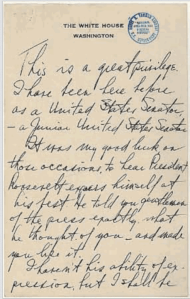 THE WHITE HOUSE
WASHINGTON
This is a great privilege.
I have been here before
as a United States Senator,
- a Junior United States Senator.
It was my good luck on
those occasions to hear President
Roosevelt express himself at
his best. He told you gentlemen
of the press exactly what
he thought of you - and made
you like it.
I haven't his ability of ex-
pression, but I shall be